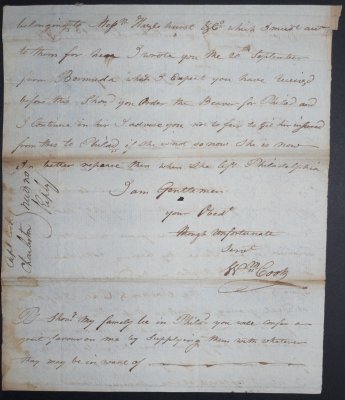 belonging to Mess.rs Hazlehurst & Co. which I must act
to them for her I wrote you the 20th September
from Bermuda which I Expect you have received
before this. Should you Order the Beaver for Philad and
I Continue in his I advise you not to fail to Get his insured
from this to Philad if she wind so now She is now
in better repair then when She left Philadelphia
I am Gentlemen
your Obed.t
though unfortunate
Servt
Wm Cook
Shou'd My family be in Philad you will confer a
great favour on me by Supplying them with whatever
they may be in want of
Capt Cook
Charleston